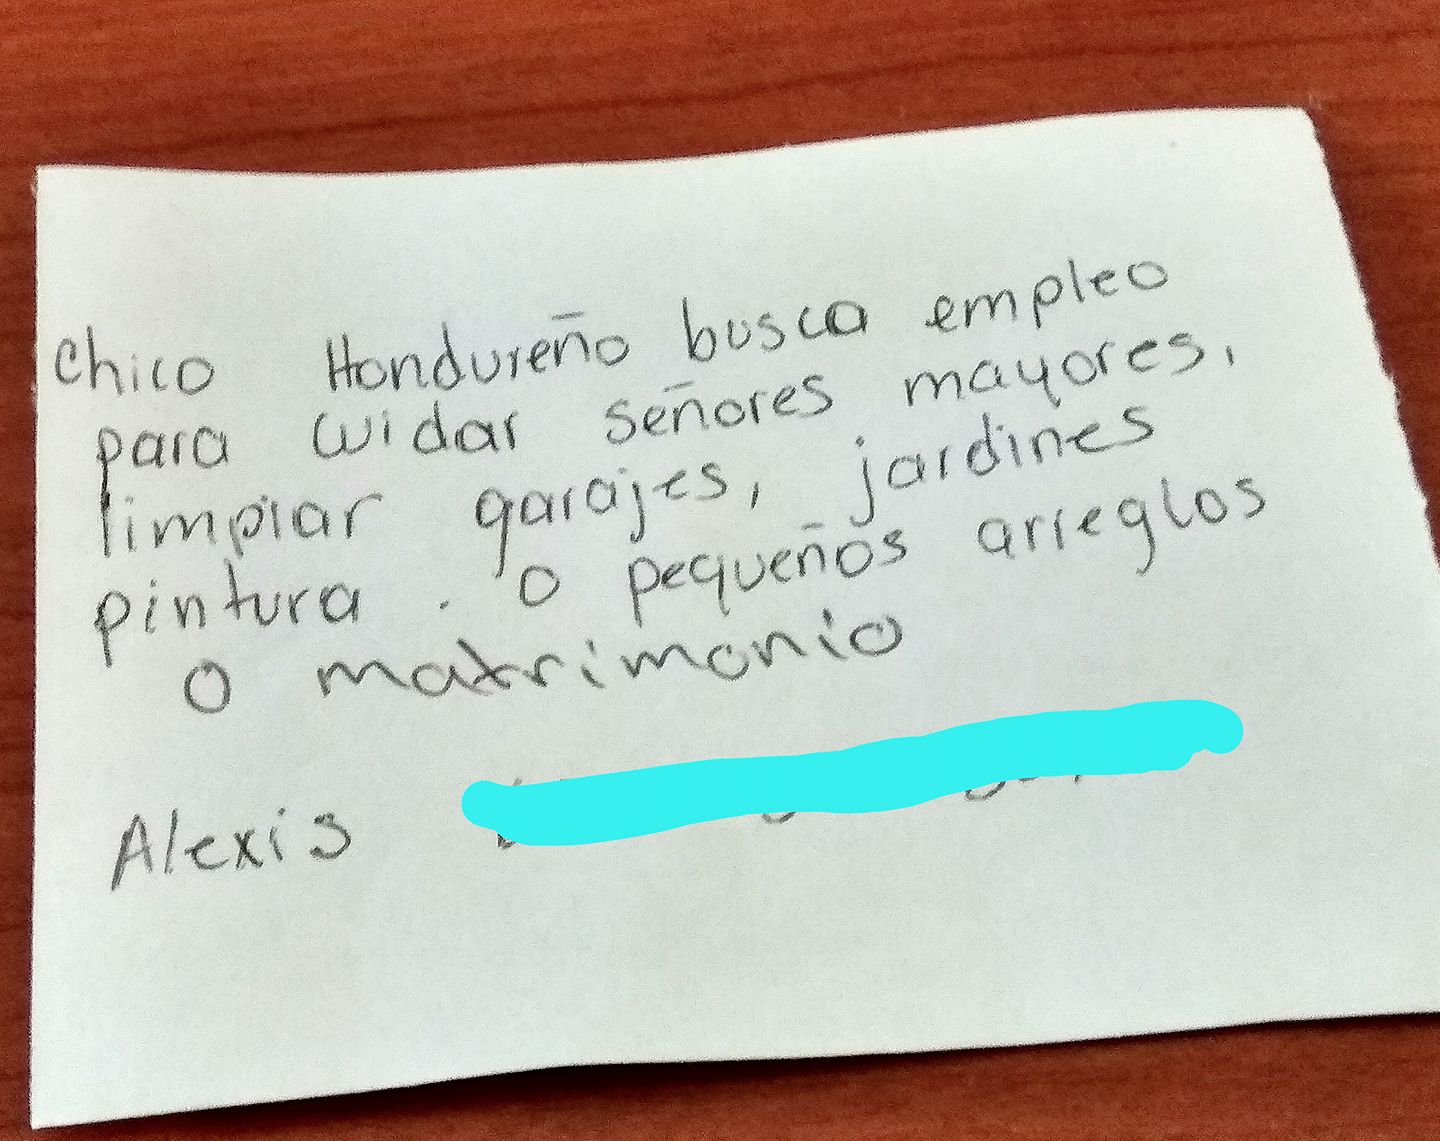 Chico Hondureño busca empleo
para cuidar señores mayores,
limpiar garajes, jardines
pintura. o pequeños arreglos
o matrimonio
Alexis